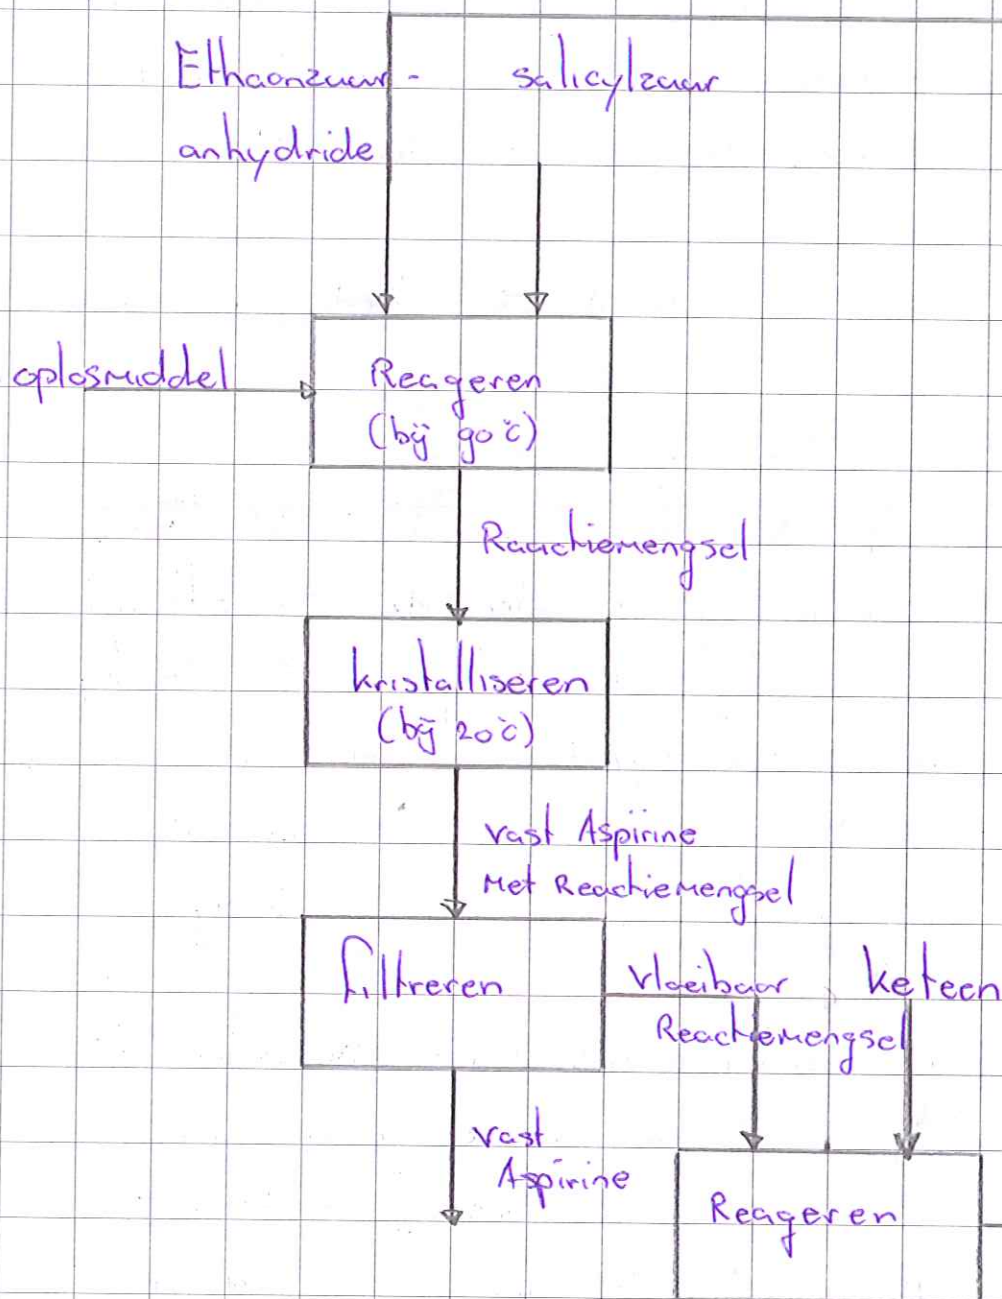 Ethaanzuur - salicylzuur
anhydride
oplosmiddel
Reageren
(bij 90°C)
Raactiemengsel
kristalliseren
(bij 20°C)
vast Aspirine
Met Reactiemengsel
filtreren
vloeibaar
Reactiemengsel
keteen
vast
Aspirine
Reageren